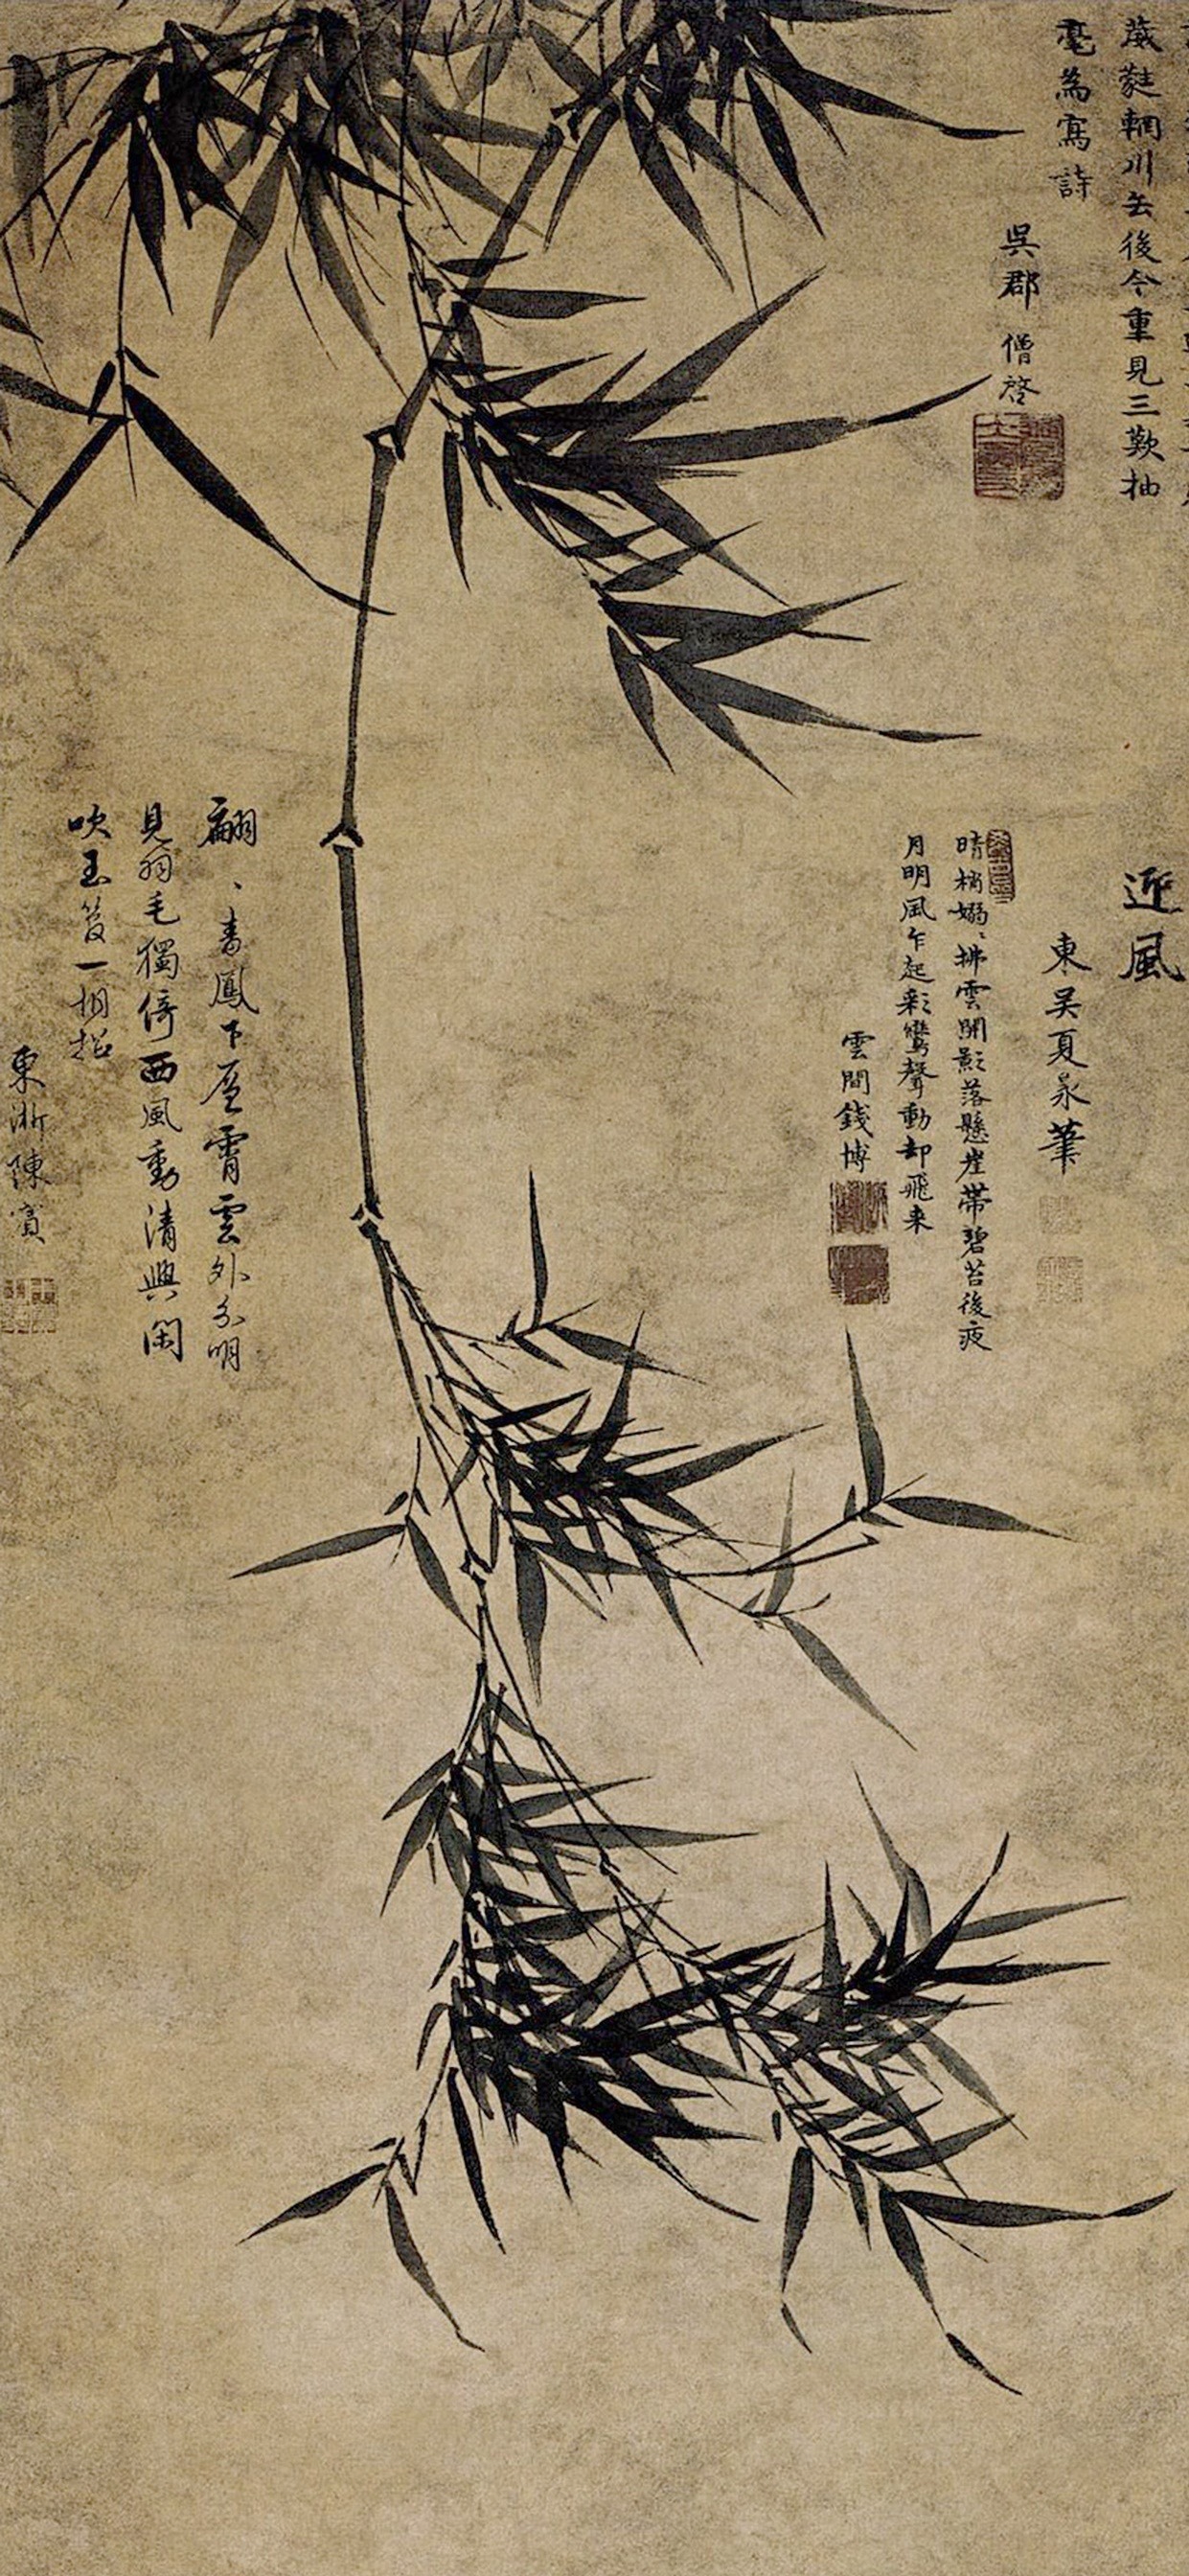 葳蕤輞川去後今重見三歎抽
毫為寫詩
吳郡 僧啓
迎風
東吴夏㫤筆
晴梢嫋〻拂雲開影落懸崖帶碧苔後夜
月明風乍起彩鸞聲動却飛来
雲間錢博
翩〻青鳳下層霄雲外分明
見羽毛獨倚西風動清興閑
吹玉笈一相招
東浙陳賓